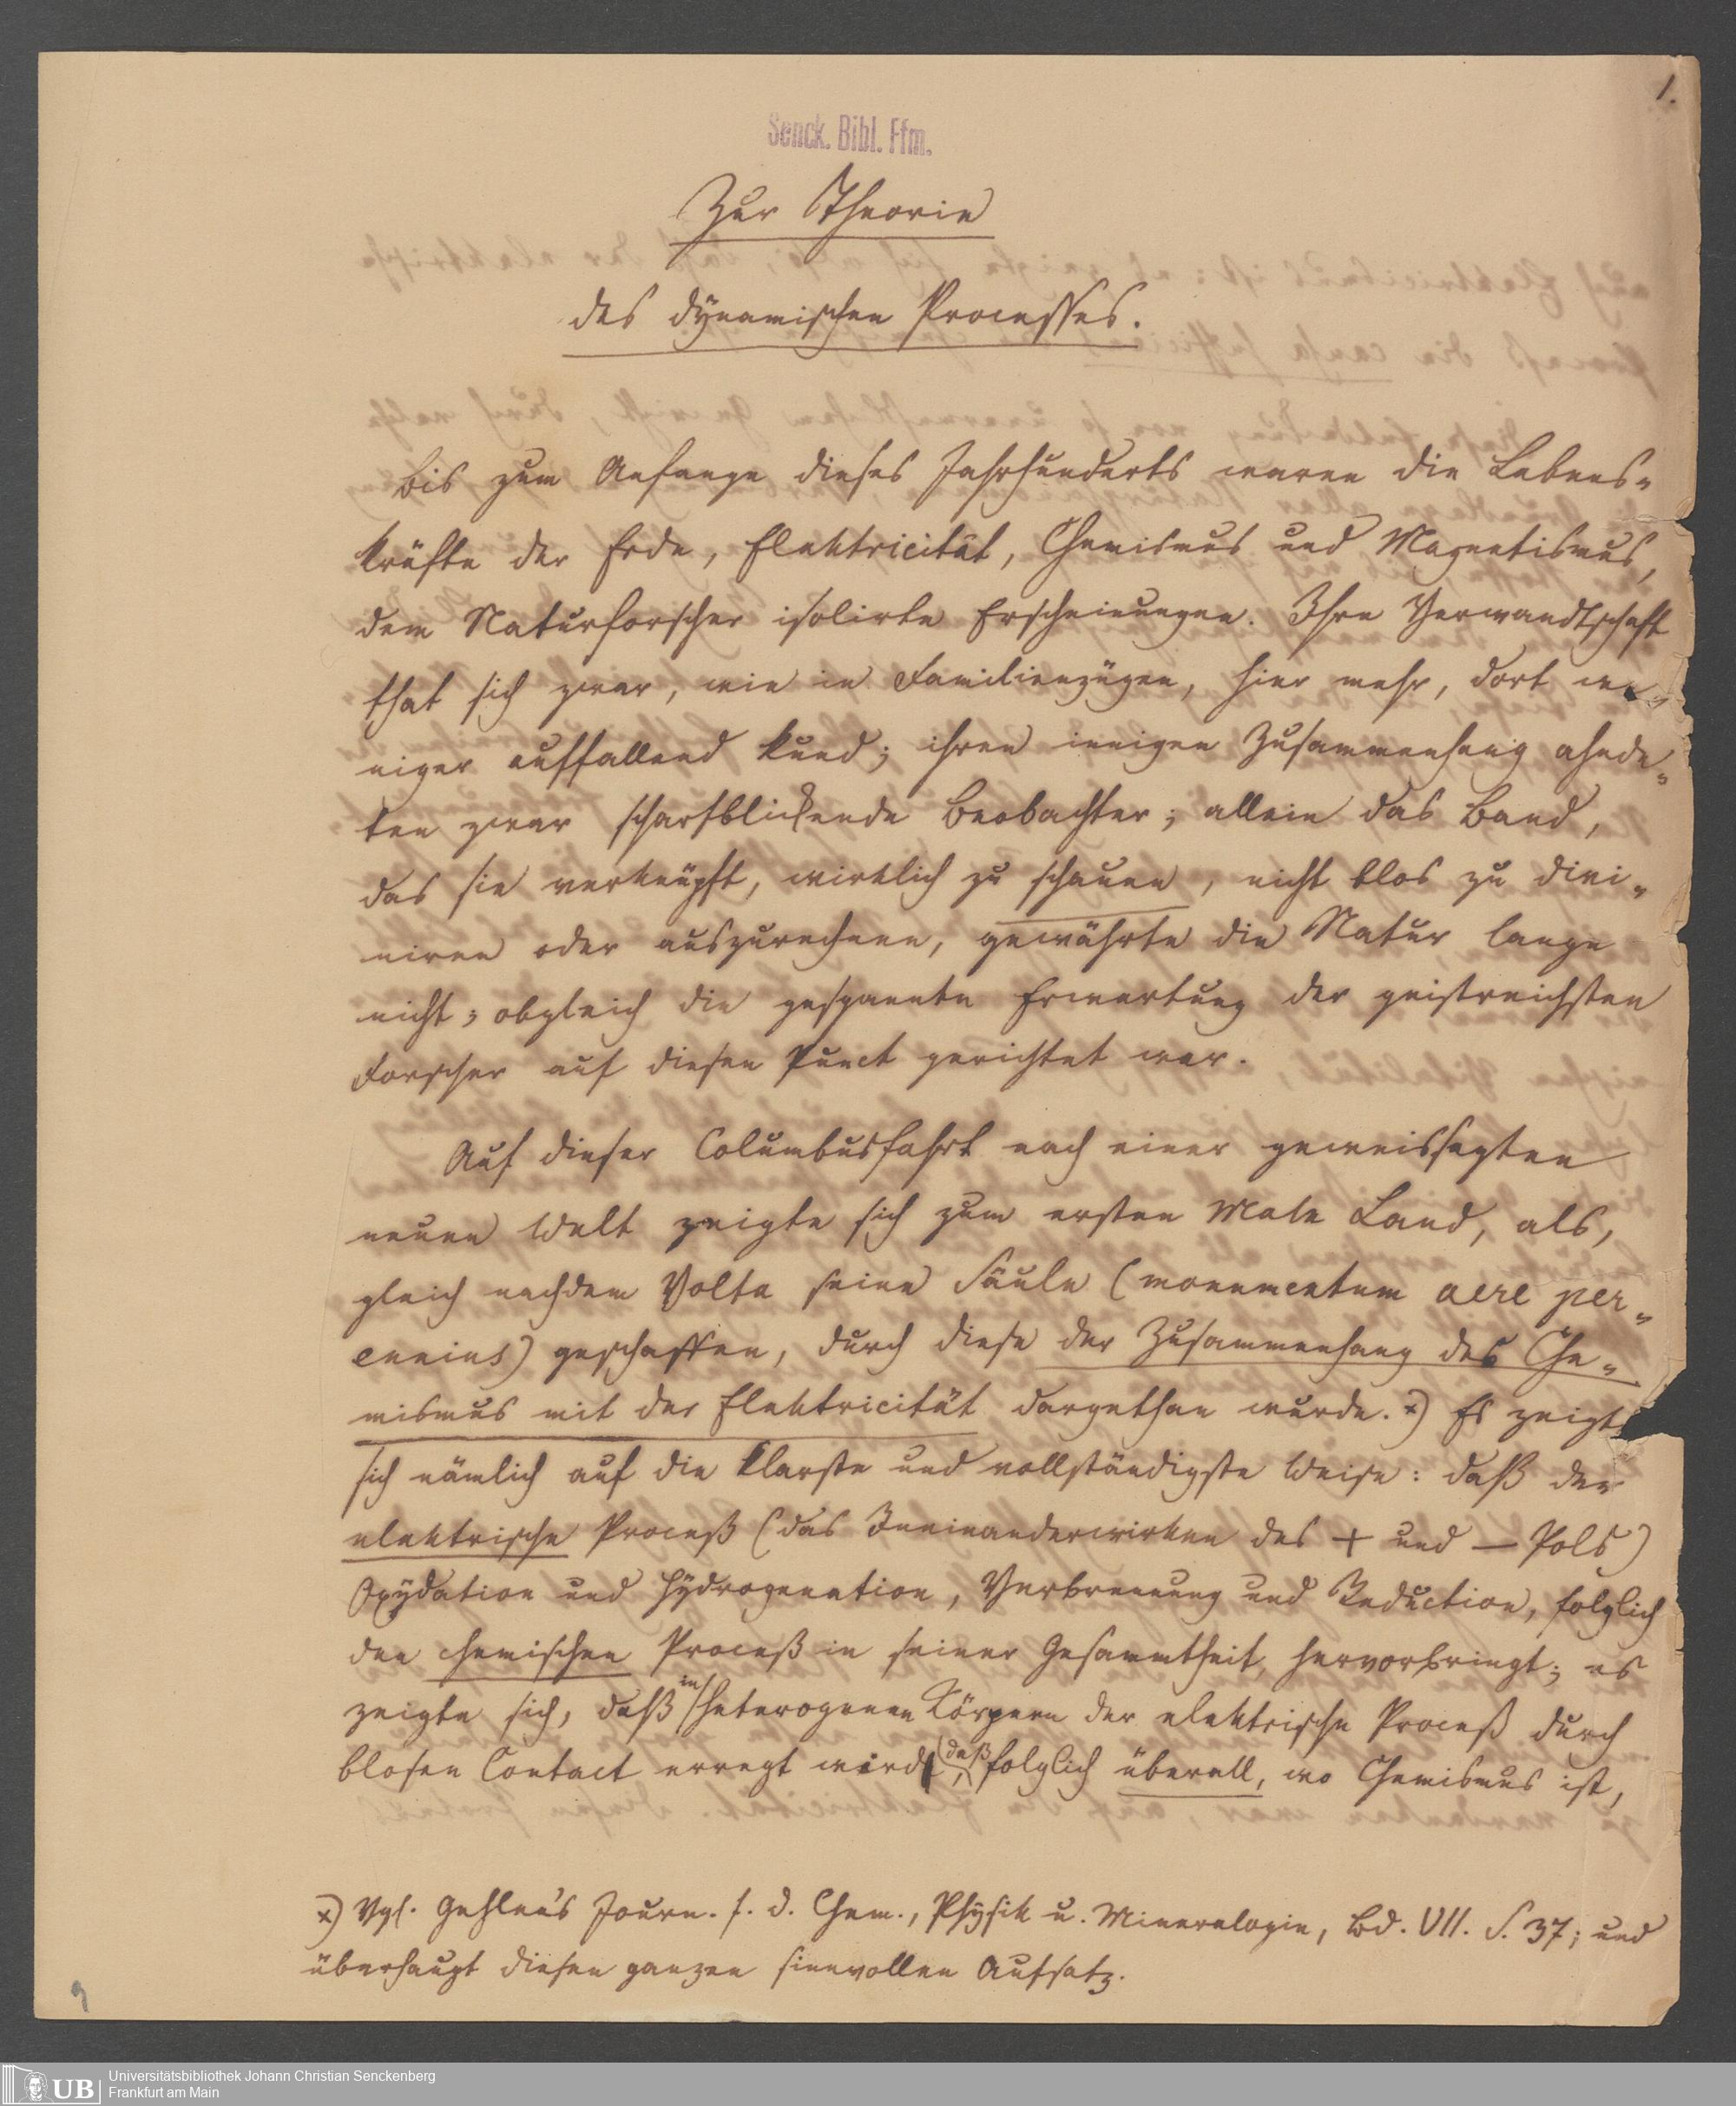 1.
Senck. Bibl. Ffm.
Zur Theorie
des dÿnamischen Processes.
Bis zum Anfange dieses Jahrhunderts waren die Lebens-
kräfte der Erde, Elektricität, Chemismus und Magnetismus,
dem Naturforscher isolirte Erscheinungen. Ihre Verwandtschaft
that sich zwar, wie in Familienzügen, hier mehr, dort we-
niger auffallend kund; ihren innigen Zusammenhang ahnde-
ten zwar scharfblickende Beobachter; allein das Band,
das sie verknüpft, wirklich zu schauen, nicht blos zu divi-
niren oder auszurechnen, gewährte die Natur lange
nicht; obgleich die gespannte Erwartung der geistreichsten
Forscher auf diesen Punct gerichtet war.
Auf dieser Columbusfahrt nach einer geweissagten
neuen Welt zeigte sich zum ersten Male Land, als,
gleich nachdem Volta seine Säule (monumentum aere per-
ennius) geschaffen, durch diese der Zusammenhang des Che-
mismus mit der Elektricität dargethan wurde. *) Es zeigte
sich nämlich auf die klarste und vollständigste Weise: daß der
elektrische Proceß (das Ineinanderwirken des + und — Pols)
Oxÿdation und Hÿdrogenation, Verbrennung und Reduction, folglich
den chemischen Proceß in seiner Gesammtheit, hervorbringt; es
zeigte sich, daß in heterogenen Körpern der elektrische Proceß durch
blosen Contact erregt wird, daß folglich überall, wo Chemismus ist,
*) Vgl. Gehlen's Journ. f. d. Chem., Phÿsik u. Mineralogie, Bd. VII. S. 37; und
überhaupt diesen ganzen sinnvollen Aufsatz.
9
UB
Universitätsbibliothek Johann Christian Senckenberg
Frankfurt am Main